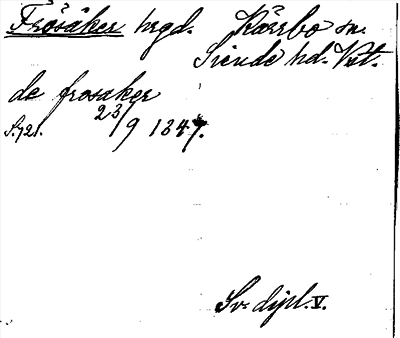 Frösåker hrgd. Kärrbo sn.
Siende hd. Vstm.
de frosaker
S. 721. 23/9 1347.
Sv. dipl. V.